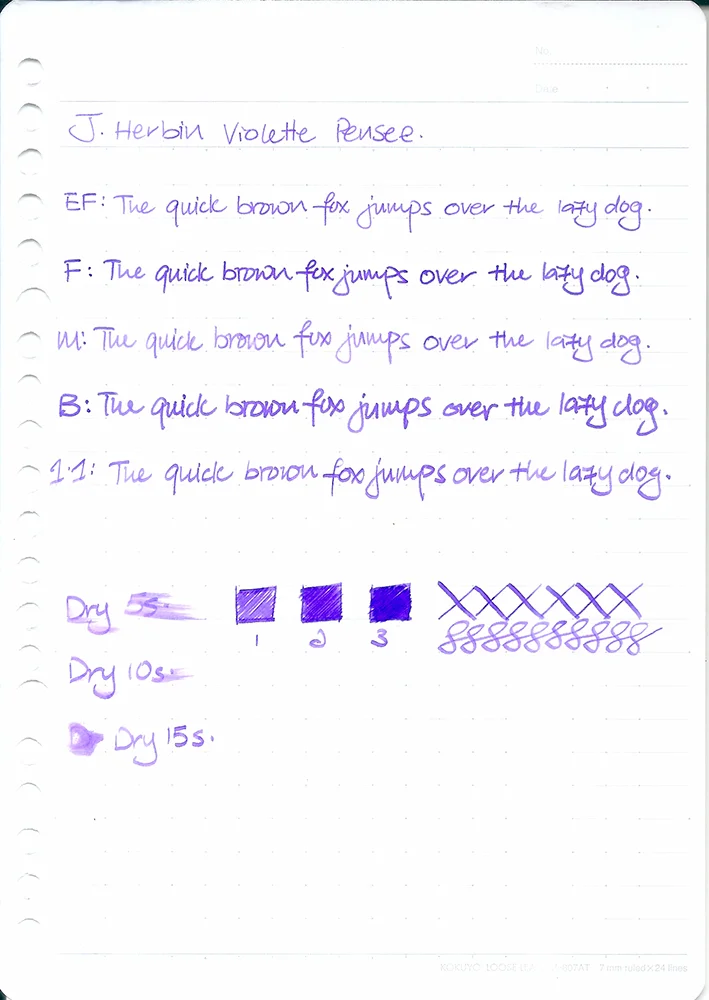 No.
Date
J. Herbin Violette Pensee.
EF: The quick brown fox jumps over the lazy dog.
F: The quick brown fox jumps over the lazy dog.
M: The quick brown fox jumps over the lazy dog.
B: The quick brown fox jumps over the lazy dog.
1.1: The quick brown fox jumps over the lazy dog.
Dry 5s.
1 2 3
Dry 10s.
Dry 15s.
KOKUYO LOOSE 7 mm ruled × 24 lines